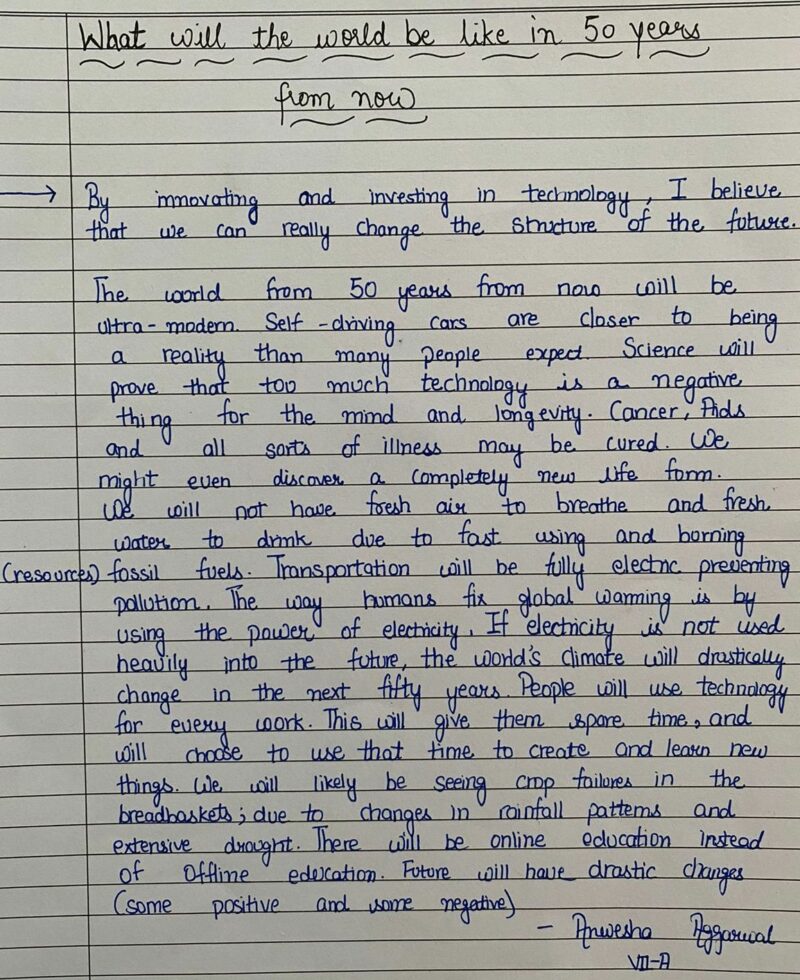 What will the world be like in 50 years
from now
→ By innovating and investing in technology, I believe
that we can really change the structure of the future.
The world from 50 years from now will be
ultra-modern. Self-driving cars are closer to being
a reality than many people expect. Science will
prove that too much technology is a negative
thing for the mind and longevity. Cancer, Aids
and all sorts of illness may be cured. We
might even discover a completely new life form.
We will not have fresh air to breathe and fresh
water to drink due to fast using and burning
(resources) fossil fuels. Transportation will be fully electric preventing
pollution. The way humans fix global warming is by
using the power of electricity. If electricity is not used
heavily into the future, the world's climate will drastically
change in the next fifty years. People will use technology
for every work. This will give them spare time, and
will choose to use that time to create and learn new
things. We will likely be seeing crop failures in the
breadbaskets; due to changes in rainfall patterns and
extensive drought. There will be online education instead
of Offline education. Future will have drastic changes
(some positive and some negative)
- Anwesha Aggarwal
VII-A